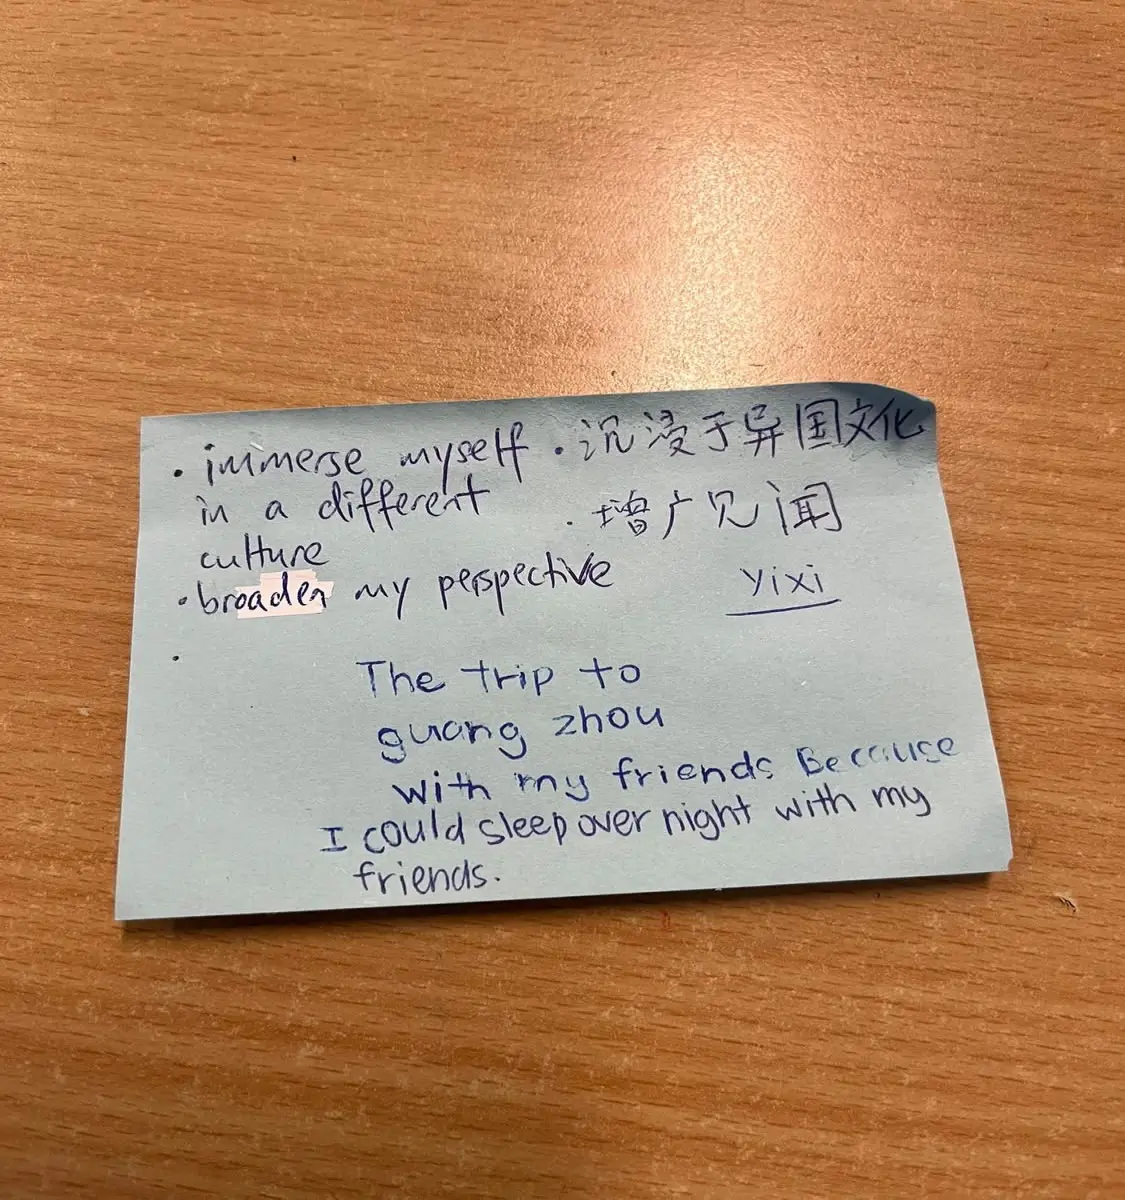 · immerse myself
in a different
culture
· broaden my perspective
·
· 沉浸于异国文化
· 增广见闻
yixi
The trip to
guang zhou
with my friends Because
I could sleep over night with my
friends.